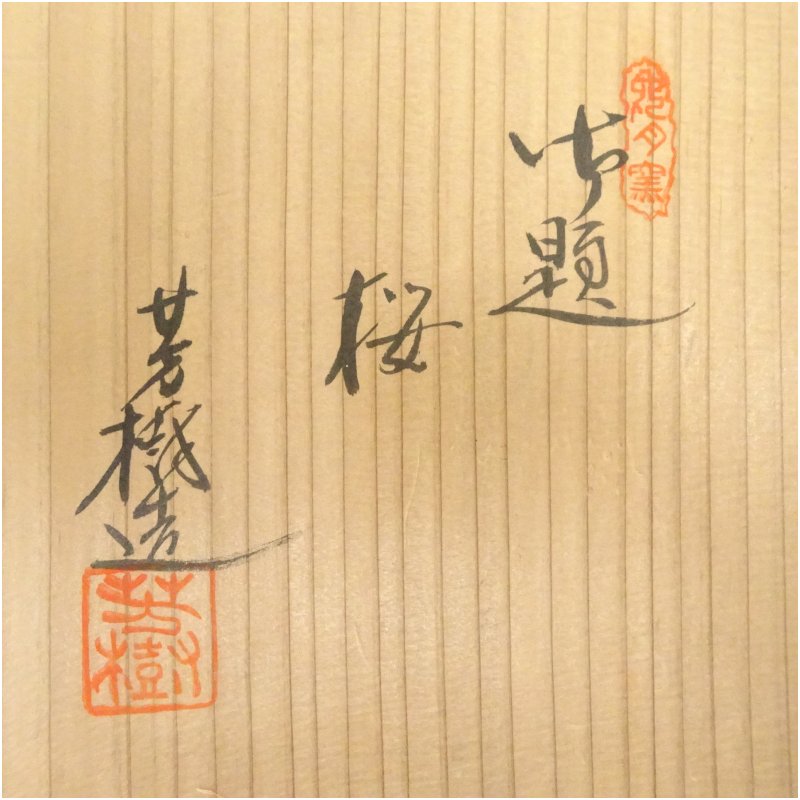 窯
御題
桜
芳樹造
芳樹